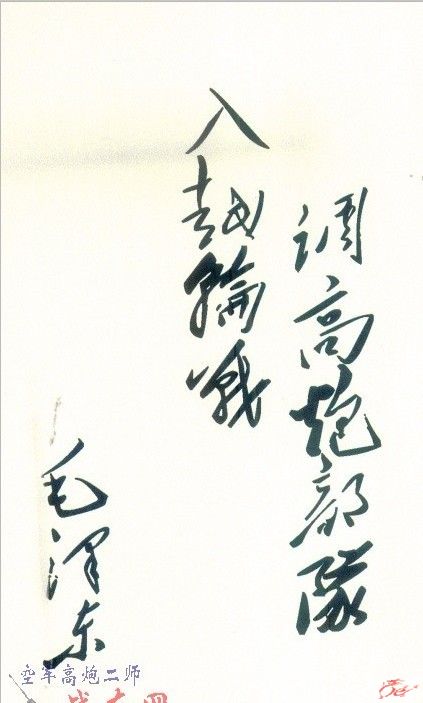 调高炮部隊
入越輪戰
毛泽东
空军高炮二师